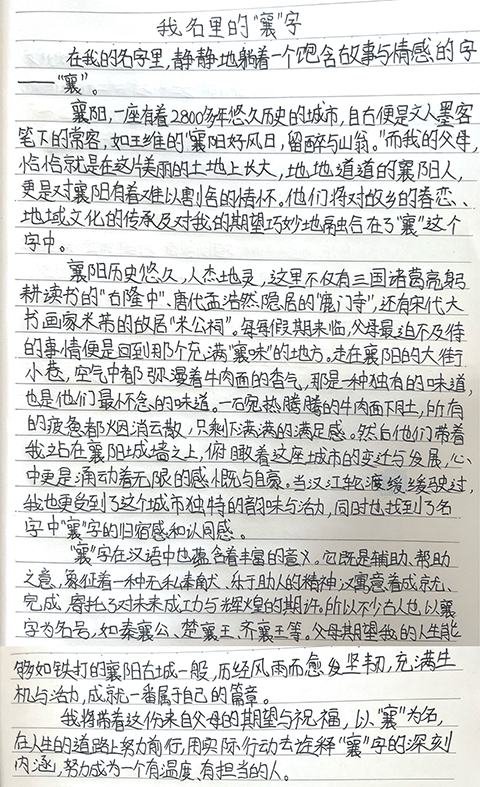 我名里的“襄”字
在我的名字里,静静地躺着一个饱含故事与情感的字
——“襄”。
襄阳,一座有着2800多年悠久历史的城市,自古便是文人墨客
笔下的常客,如王维的“襄阳好风日,留醉与山翁。”而我的父母,
恰恰就是在这片美丽的土地上长大,地地道道的襄阳人,
更是对襄阳有着难以割舍的情怀。他们将对故乡的眷恋、
地域文化的传承及对我的期望巧妙地融合在了“襄”这个
字中。
襄阳历史悠久,人杰地灵,这里不仅有三国诸葛亮躬
耕读书的“古隆中”、唐代孟浩然隐居的“鹿门寺”,还有宋代大
书画家米芾的故居“米公祠”。每每假期来临,父母最迫不及待
的事情便是回到那个充满“襄味”的地方。走在襄阳的大街
小巷,空气中都弥漫着牛肉面的香气,那是一种独有的味道,
也是他们最怀念的味道。一碗热腾腾的牛肉面下肚,所有
的疲惫都烟消云散,只剩下满满的满足感。然后他们带着
我站在襄阳城墙之上,俯瞰着这座城市的变迁与发展,心
中更是涌动着无限的感慨与自豪。当汉江轮渡缓缓驶过,
我也更感到了这个城市独特的韵味与活力,同时也找到了名
字中“襄”字的归宿感和认同感。
“襄”字在汉语中也蕴含着丰富的意义。它既是辅助、帮助
之意,象征着一种无私奉献、乐于助人的精神,又寓意着成就、
完成,寄托了对未来成功与辉煌的期许。所以不少古人也以襄
字为名号,如秦襄公、楚襄王、齐襄王等。父母期望我的人生能
够如铁打的襄阳古城一般,历经风雨而愈发坚韧,充满生
机与活力,成就一番属于自己的篇章。
我将带着这份来自父母的期望与祝福,以“襄”为名,
在人生的道路上努力前行,用实际行动去诠释“襄”字的深刻
内涵,努力成为一个有温度、有担当的人。